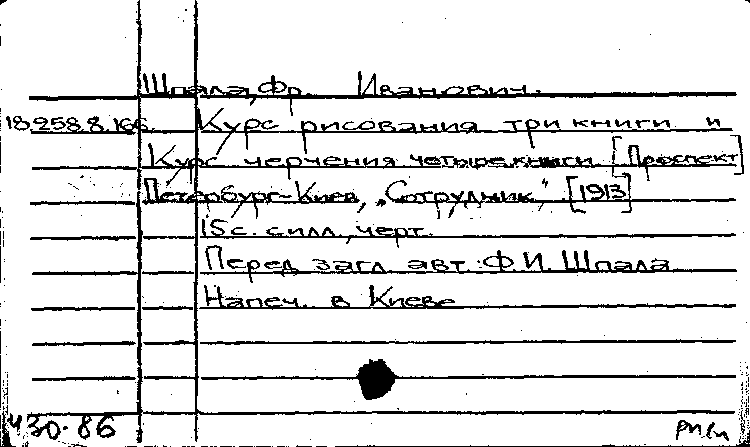 Шпала, Фр. Иванович.
18.258.8.166. Курс рисования три книги и
Курс черчения четыре книги [Проспект]
Петербург-Киев, „Сотрудник", [1913]
15с. с илл., черт.
Перед загл. авт.: Ф.И. Шпала
Напеч. в Киеве
430.86